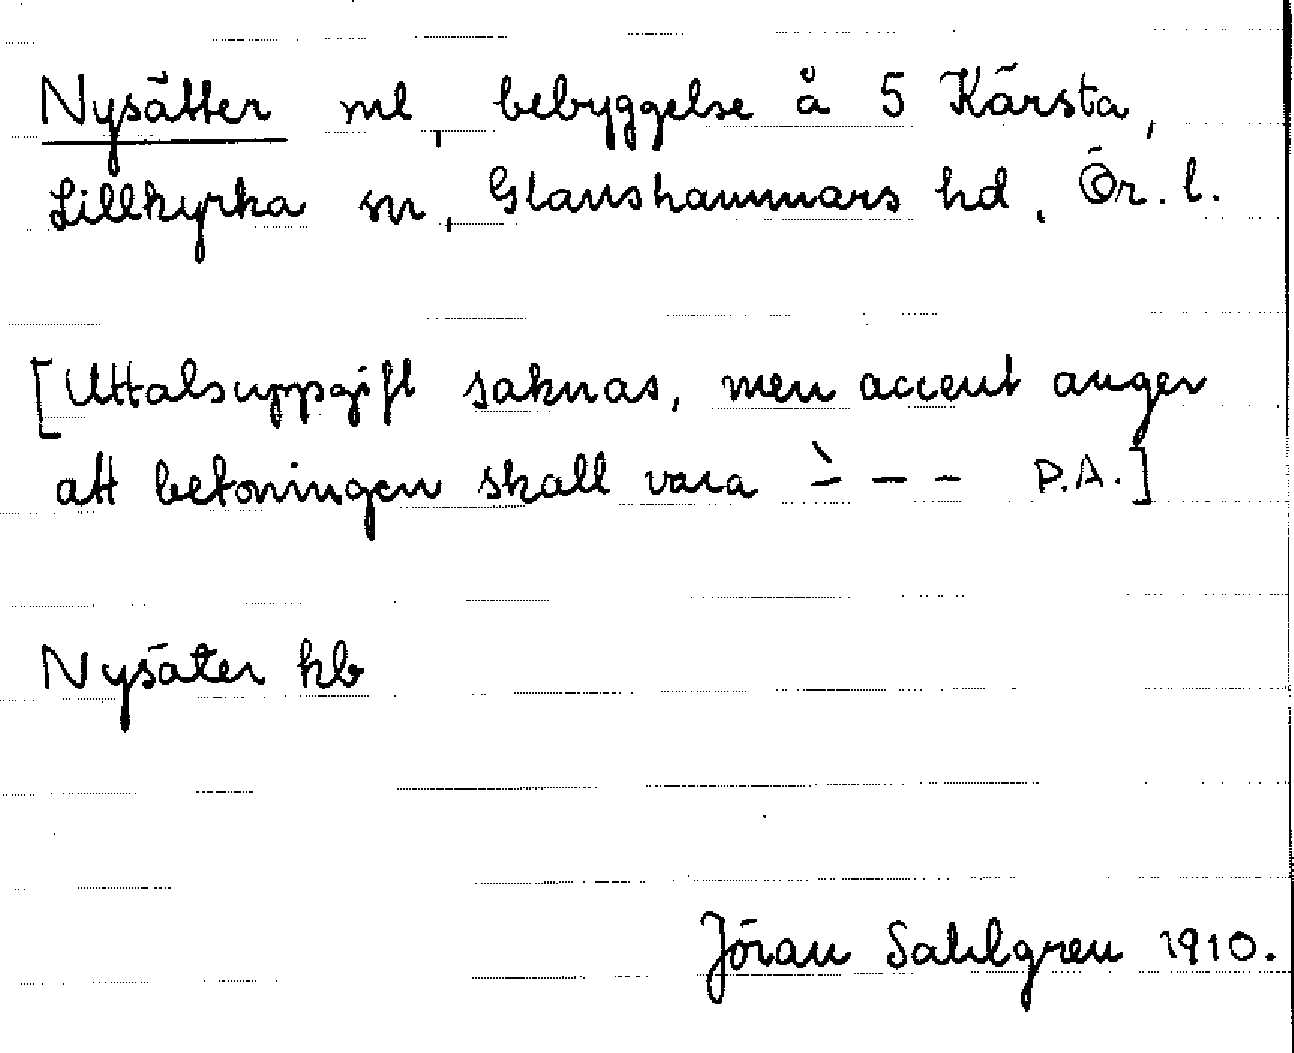 Nysätter ml, bebyggelse å 5 Kärsta,
Lillkyrka sn, Glanshammars hd, Ör. l.
[Uttalsuppgift saknas, men accent anger
att betoningen skall vara -̀ - - P.A.]
Nysäter kb
Jöran Sahlgren 1910.